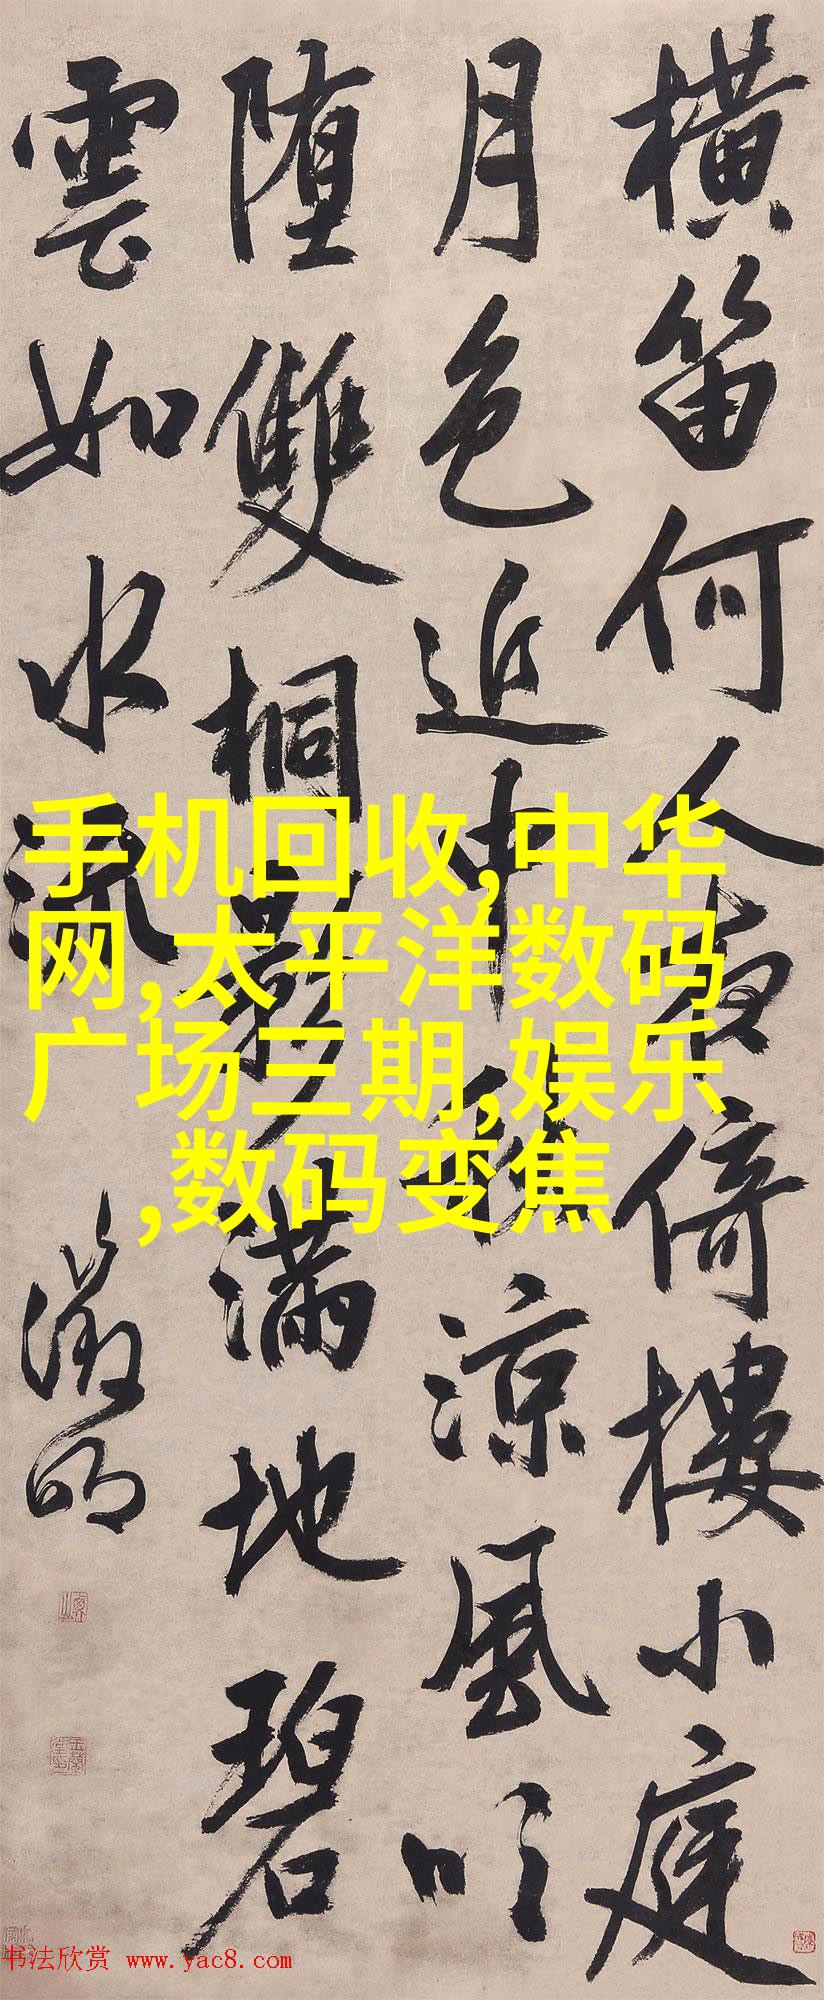 横笛何人夜倚樓小庭
月色近中秋涼風吹
堕雙桐影滿地碧
雲如水流
徵明
手机回收,中华
网,太平洋数码
广场三期,娱乐
,数码变焦
书法欣赏 www.yac8.com